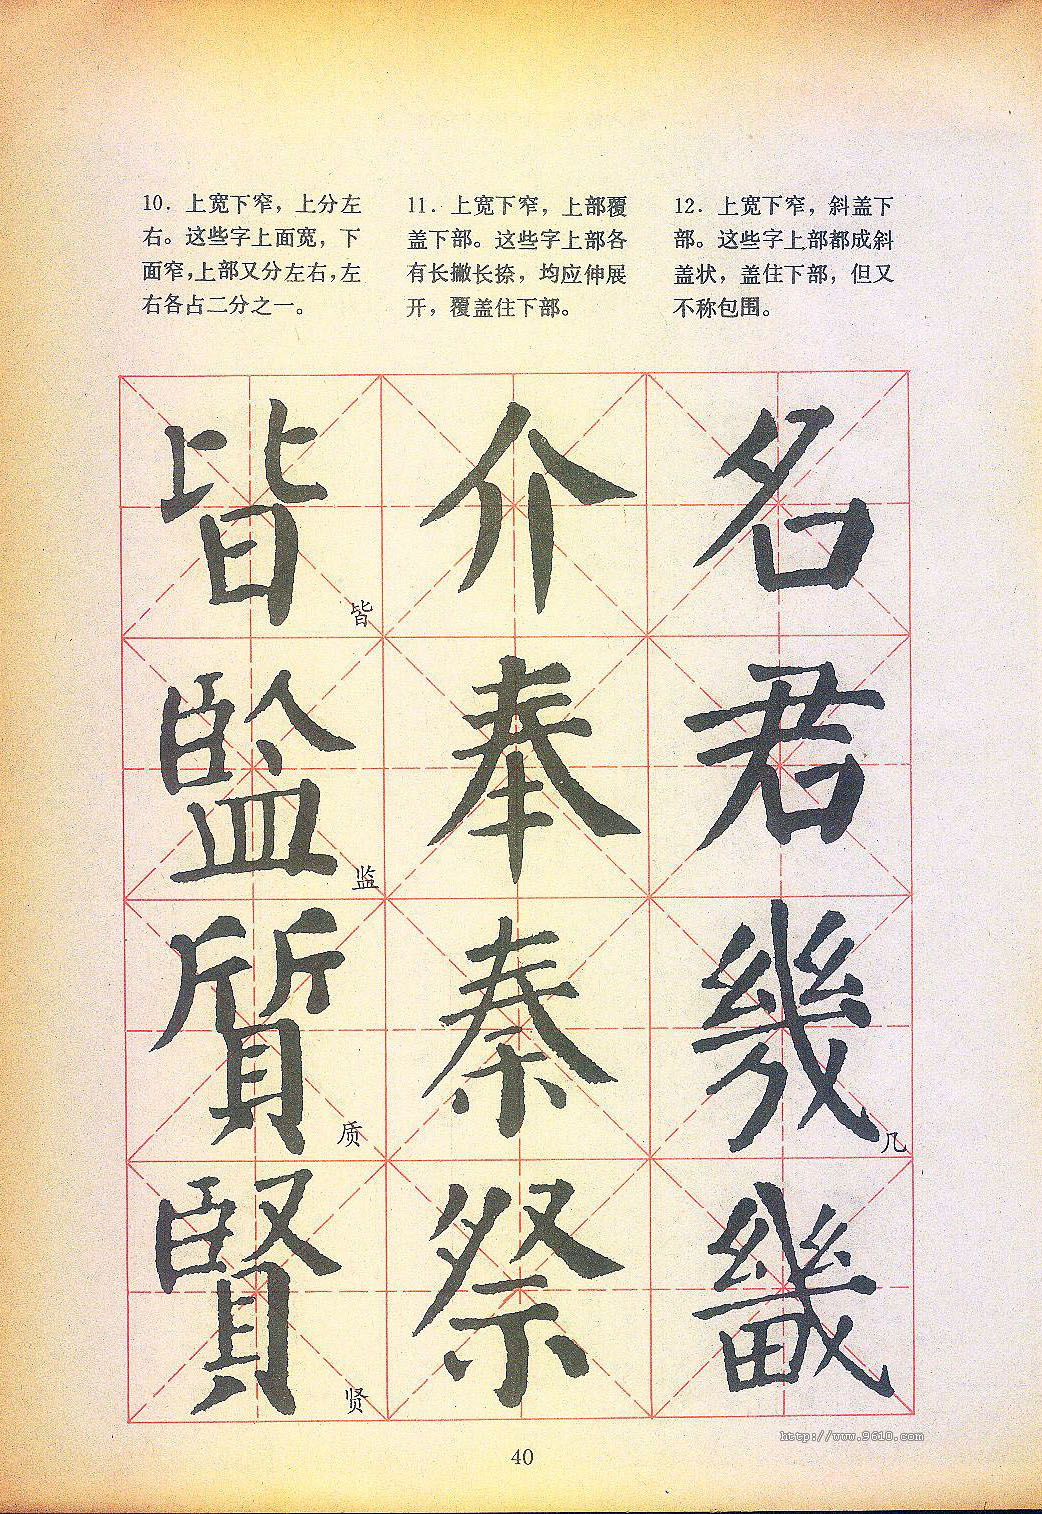 10. 上宽下窄，上分左
右。这些字上面宽，下
面窄，上部又分左右，左
右各占二分之一。
11. 上宽下窄，上部覆
盖下部。这些字上部各
有长撇长捺，均应伸展
开，覆盖住下部。
12. 上宽下窄，斜盖下
部。这些字上部都成斜
盖状，盖住下部，但又
不称包围。
皆
介
名
皆
監
奉
君
监
質
秦
幾
质
几
賢
祭
畿
贤
http://www.9610.com
40